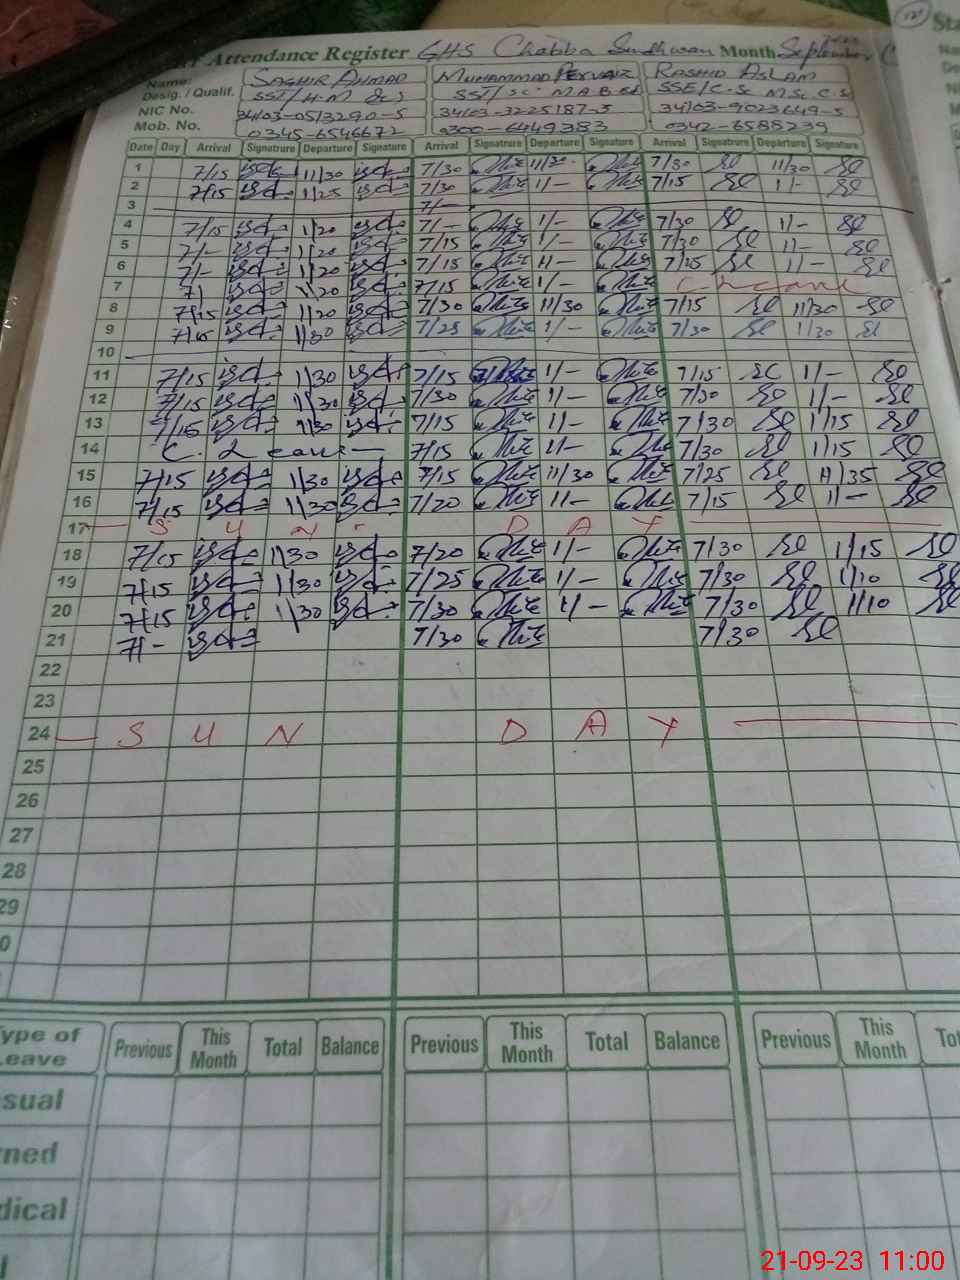 Attendance Register GHS Chabba Sindhwan Month September
Name: SAGHIR AHMAD MUHAMMAD PERVAIZ RASHID ASLAM
Desig. / Qualif. SST/H.M SST/SC M.A B.Ed SSE/C.Sc M.Sc C.S
NIC No. 34103-0513290-5 34103-3225187-5 34103-9023649-5
Mob. No. 0345-6546672 0300-6449383 0342-6588239
Date Day Arrival Signatrure Departure Signature Arrival Signatrure Departure Signature Arrival Signatrure Departure Signature
1 7/15 11/30 7/30 11/30 7/30 11/30
2 7/15 11/25 7/30 1/- 7/15 1/-
3 7/-
4 7/15 1/20 7/- 1/- 7/30 1/-
5 7/- 1/20 7/15 1/- 7/30 1/-
6 7/- 1/20 7/15 11- 7/25 1/-
7 7/ 1/20 7/15 1/- C. Leave
8 7/15 1/20 7/30 11/30 7/15 11/30
9 7/15 1/30 7/25 1/- 7/30 1/30
10
11 7/15 1/30 7/15 1/- 7/15 1/-
12 7/15 1/30 7/30 1/- 7/30 1/-
13 7/15 1/30 7/15 1/- 7/30 1/15
14 C. Leave 7/15 1/- 7/30 1/15
15 7/15 1/30 7/15 11/30 7/25 11/35
16 7/15 1/30 7/20 1/- 7/15 1/-
17 S U N D A Y
18 7/15 1/30 7/20 1/- 7/30 1/15
19 7/15 1/30 7/25 1/- 7/30 1/10
20 7/15 1/30 7/30 1/- 7/30 1/10
21 7/- 7/30 7/30
22
23
24 S U N D A Y
25
26
27
28
29
0
Type of Leave Previous This Month Total Balance Previous This Month Total Balance Previous This Month Tot
sual
ned
dical
21-09-23 11:00